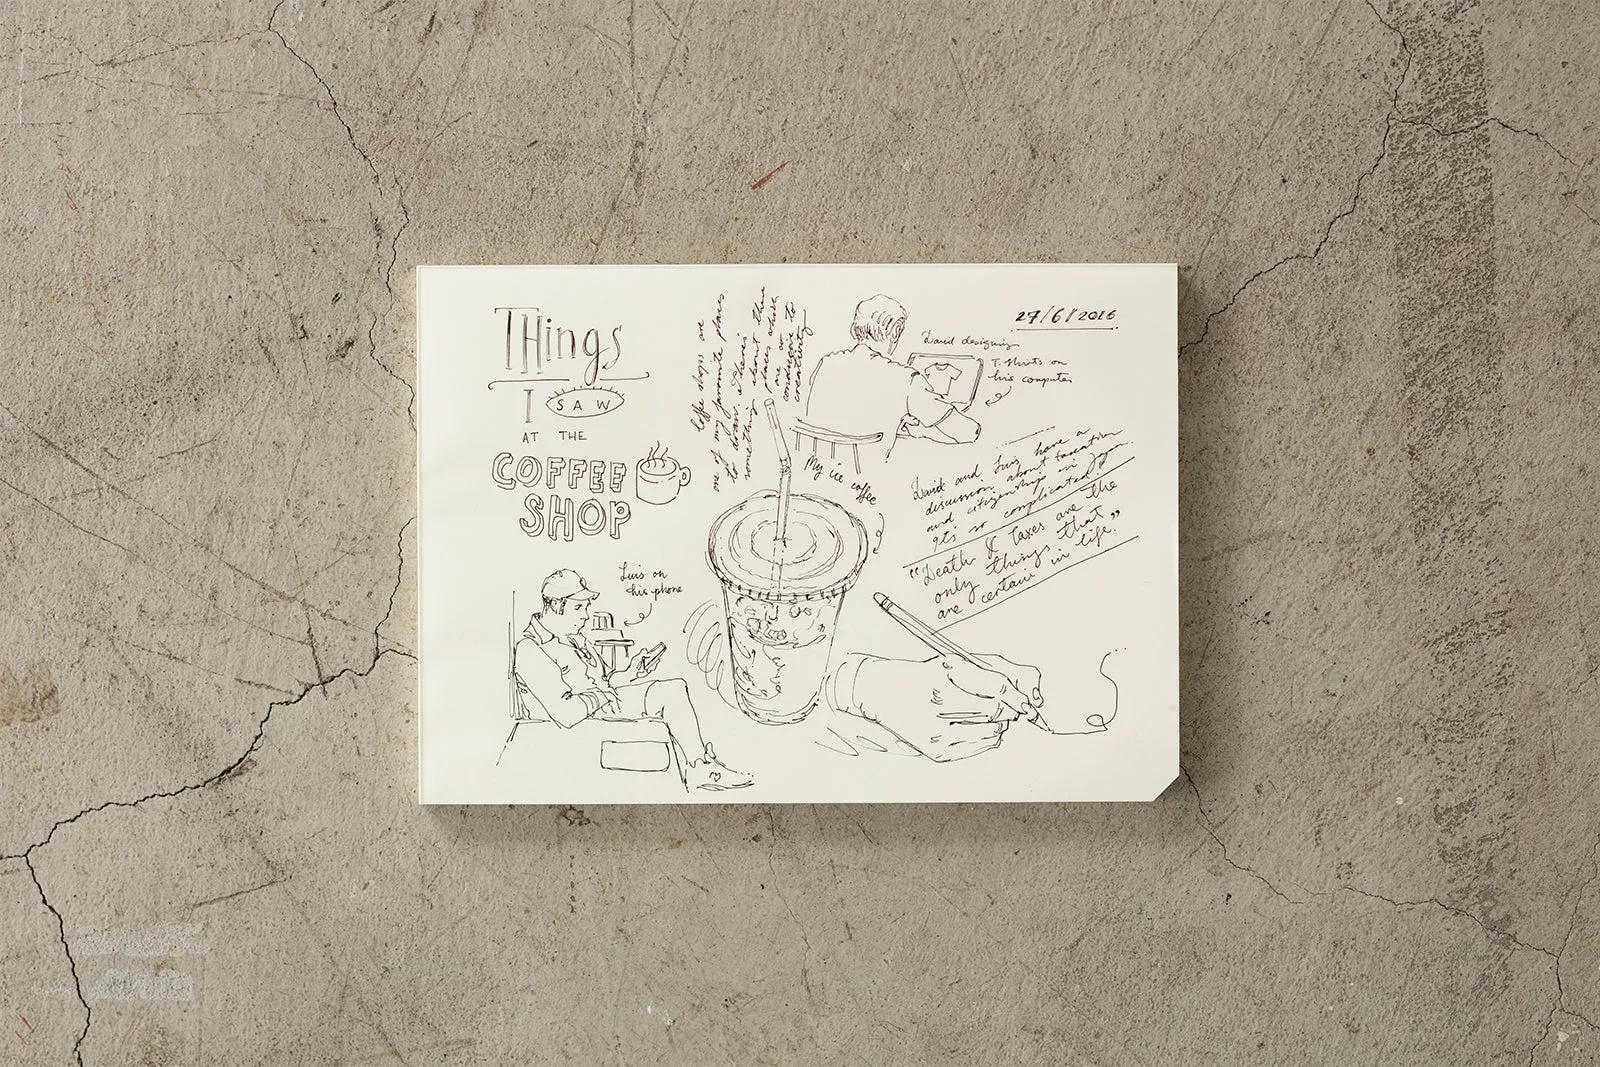 THings
I SAW
AT THE
COFFEE
SHOP
Coffee shops are
one of my favourite places
to draw. There's
something about these
places which
are so
conducive to
creativity.
27/6/2016
David designing
T-shirts on
his computer
My ice coffee
David and Luis have a
discussion about taxation
and citizenship in Japan.
It's so complicated.
"Death & Taxes are the
only things that
are certain in life."
Luis on
his phone